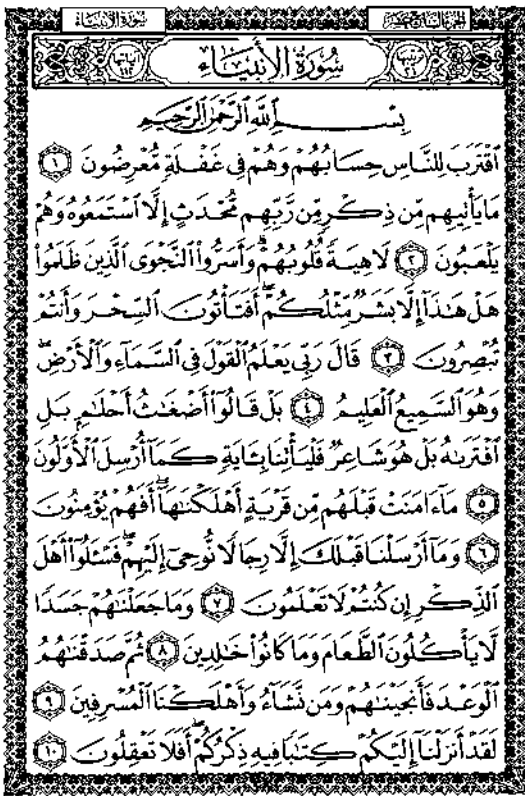 سُورَةُ الأَنبِيَاء الجُزءُ السَّابِعَ عَشَرَ
ترتيبها ٢١ سُورَةُ الأَنبِيَاء آياتها ١١٢
بِسْمِ ٱللَّهِ ٱلرَّحْمَٰنِ ٱلرَّحِيمِ
ٱقْتَرَبَ لِلنَّاسِ حِسَابُهُمْ وَهُمْ فِى غَفْلَةٍ مُّعْرِضُونَ ١
مَا يَأْتِيهِم مِّن ذِكْرٍ مِّن رَّبِّهِم مُّحْدَثٍ إِلَّا ٱسْتَمَعُوهُ وَهُمْ
يَلْعَبُونَ ٢ لَاهِيَةً قُلُوبُهُمْ ۗ وَأَسَرُّوا۟ ٱلنَّجْوَى ٱلَّذِينَ ظَلَمُوا۟
هَلْ هَٰذَآ إِلَّا بَشَرٌ مِّثْلُكُمْ ۖ أَفَتَأْتُونَ ٱلسِّحْرَ وَأَنتُمْ
تُبْصِرُونَ ٣ قَالَ رَبِّى يَعْلَمُ ٱلْقَوْلَ فِى ٱلسَّمَآءِ وَٱلْأَرْضِ ۖ
وَهُوَ ٱلسَّمِيعُ ٱلْعَلِيمُ ٤ بَلْ قَالُوٓا۟ أَضْغَٰثُ أَحْلَٰمٍۭ بَلِ
ٱفْتَرَىٰهُ بَلْ هُوَ شَاعِرٌ فَلْيَأْتِنَا بِـَٔايَةٍ كَمَآ أُرْسِلَ ٱلْأَوَّلُونَ
٥ مَآ ءَامَنَتْ قَبْلَهُم مِّن قَرْيَةٍ أَهْلَكْنَٰهَآ ۖ أَفَهُمْ يُؤْمِنُونَ
٦ وَمَآ أَرْسَلْنَا قَبْلَكَ إِلَّا رِجَالًا نُّوحِىٓ إِلَيْهِمْ ۖ فَسْـَٔلُوٓا۟ أَهْلَ
ٱلذِّكْرِ إِن كُنتُمْ لَا تَعْلَمُونَ ٧ وَمَا جَعَلْنَٰهُمْ جَسَدًا
لَّا يَأْكُلُونَ ٱلطَّعَامَ وَمَا كَانُوا۟ خَٰلِدِينَ ٨ ثُمَّ صَدَقْنَٰهُمُ
ٱلْوَعْدَ فَأَنجَيْنَٰهُمْ وَمَن نَّشَآءُ وَأَهْلَكْنَا ٱلْمُسْرِفِينَ ٩
لَقَدْ أَنزَلْنَآ إِلَيْكُمْ كِتَٰبًا فِيهِ ذِكْرُكُمْ ۖ أَفَلَا تَعْقِلُونَ ١٠